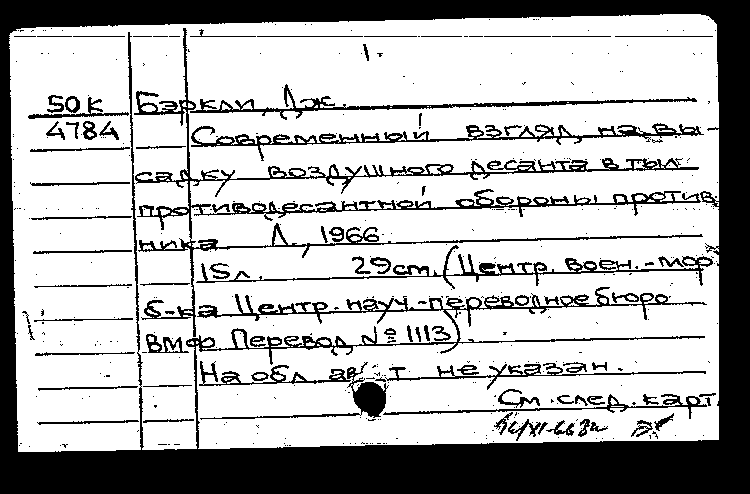 1.
50К Бэркли, Дж.
4784 Современный взгляд на вы-
садку воздушного десанта в тыл
противодесантной обороны против
ника. Л., 1966.
15л. 29cm. (Центр. воен.-мор.
б-ка Центр. науч.-переводное бюро
ВМФ Перевод № 1113).
На обл. не указан.
См. след. карт.